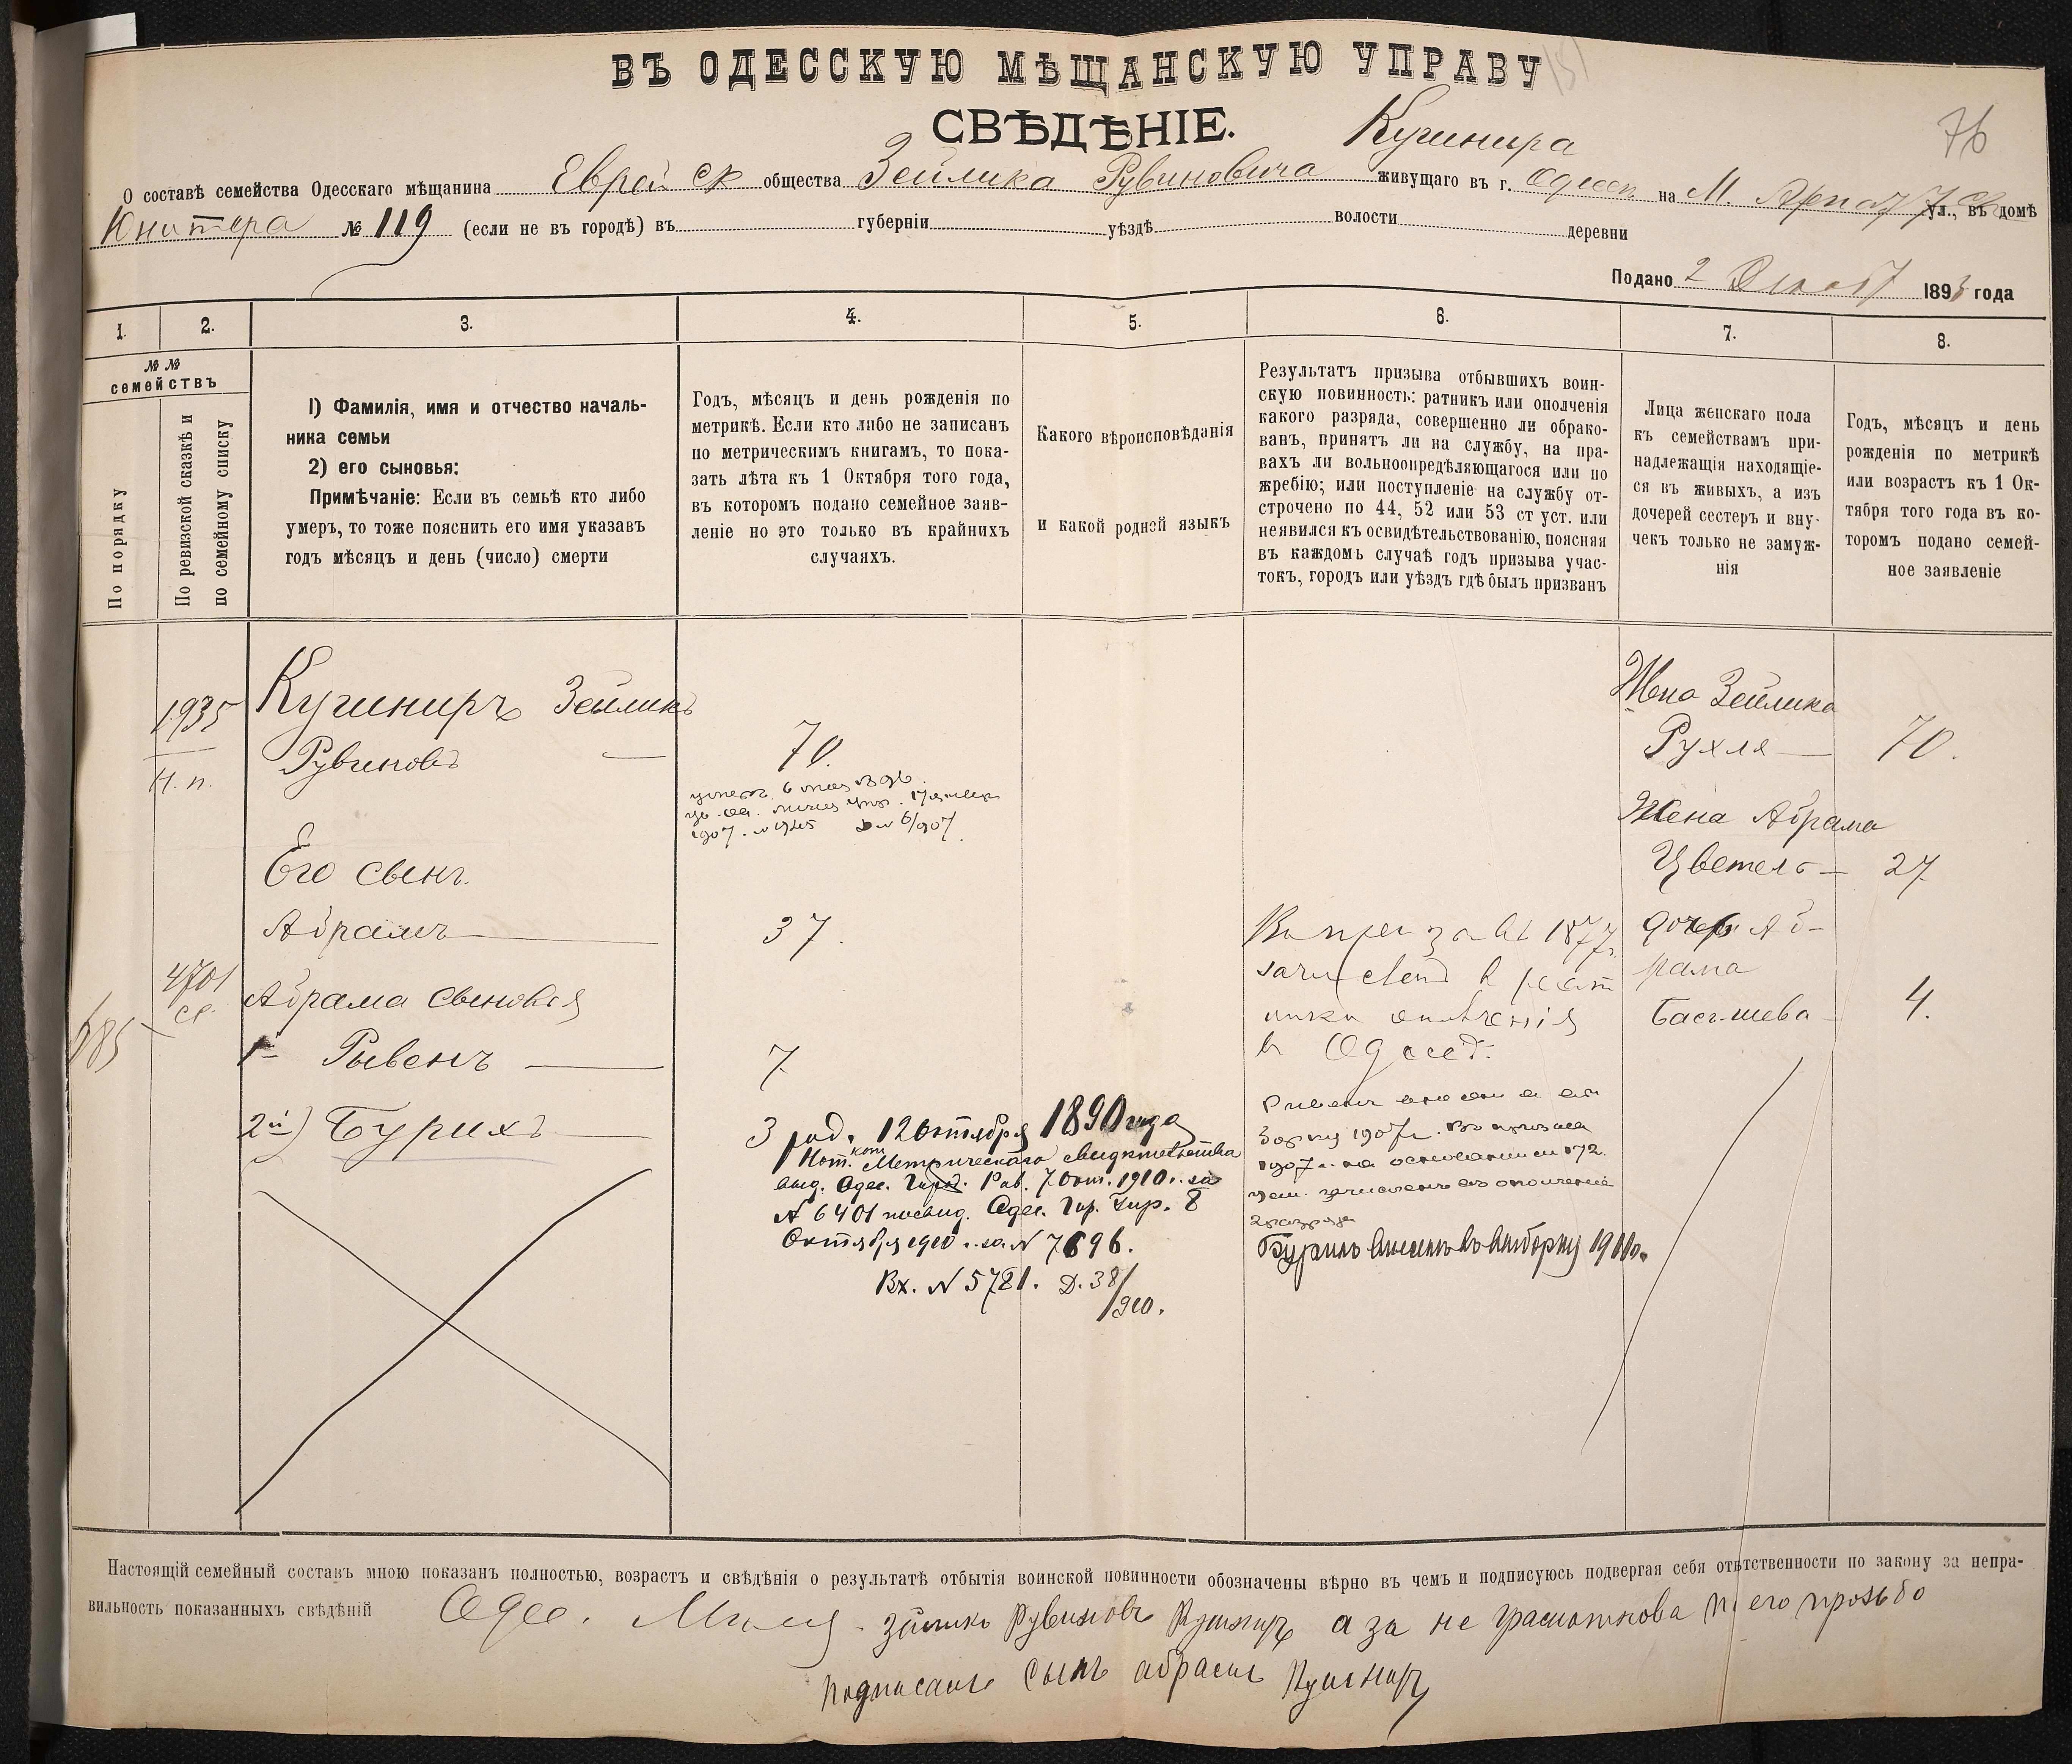 ВЪ ОДЕССКУЮ МѢЩАНСКУЮ УПРАВУ
СВѢДѢНІЕ.
76
Кушнира
О составѣ семейства Одесскаго мѣщанина Еврейск общества Зейлика Рувиновича живущаго въ г. Одессѣ на М. Арнаут ул., въ домѣ
Юпитера № 119 (если не въ городѣ) въ губерніи уѣздѣ волости деревни
Подано 2 1893 года
1. 2. 3. 4. 5. 6. 7. 8.
№ №
семействъ
По порядку
По ревизской сказкѣ и
по семейному списку
1) Фамилія, имя и отчество началь-
ника семьи
2) его сыновья:
Примѣчаніе: Если въ семьѣ кто либо
умеръ, то тоже пояснить его имя указавъ
годъ мѣсяцъ и день (число) смерти
Годъ, мѣсяцъ и день рожденія по
метрикѣ. Если кто либо не записанъ
по метрическимъ книгамъ, то пока-
зать лѣта къ 1 Октября того года,
въ которомъ подано семейное заяв-
леніе но это только въ крайнихъ
случаяхъ.
Какого вѣроисповѣданія
и какой родной языкъ
Результатъ призыва отбывшихъ воин-
скую повинность: ратникъ или ополченія
какого разряда, совершенно ли обрако-
ванъ, принятъ ли на службу, на пра-
вахъ ли вольноопредѣляющагося или по
жребію; или поступленіе на службу от-
строчено по 44, 52 или 53 ст уст. или
неявился къ освидѣтельствованію, поясняя
въ каждомъ случаѣ годъ призыва учас-
токъ, городъ или уѣздъ гдѣ былъ призванъ
Лица женскаго пола
къ семействамъ при-
надлежащія находящіе-
ся въ живыхъ, а изъ
дочерей сестеръ и вну-
чекъ только не замуж-
нія
Годъ, мѣсяцъ и день
рожденія по метрикѣ
или возрастъ къ 1 Ок-
тября того года въ ко-
торомъ подано семей-
ное заявленіе
1935
н. п.
Кушниръ Зейликъ
Рувиновъ
70.
1907
Жена Зейлика
Рухля 70.
Жена Абрама
Цветель 27
Его сынъ
Абрамъ 37.
Въ 1877 г.
зачисленъ в рат
ники ополченія
в Одессе.
дочерь Аб-
рама
Басшева 4.
4701
685
Абрама сыновья
1- Рывенъ 7
2й) Бурихъ
3 род. 12 октября 1890 года
Метрическаго свидѣтельства
выд. Одес. Город. Рав. 7 Окт. 1910 г. за
№ 6401 Одес. Гор. Упр. 8
Октября 1910 г. за № 7696.
Вх. № 5781. Д. 38/910.
1907 г.
1907 г. на основании
зачисленъ въ ополченіе
2 разряда
Бурихъ внесенъ въ выборку 1911 г.
Настоящій семейный составъ мною показанъ полностью, возрастъ и свѣдѣнія о результатѣ отбытія воинской повинности обозначены вѣрно въ чемъ и подписуюсь подвергая себя отвѣтственности по закону за непра-
вильность показанныхъ свѣдѣній Одес. Зейликъ Рувиновъ Кушниръ а за не грамотнова по его прозьбо
подписалъ сынъ абрамъ Кушниръ